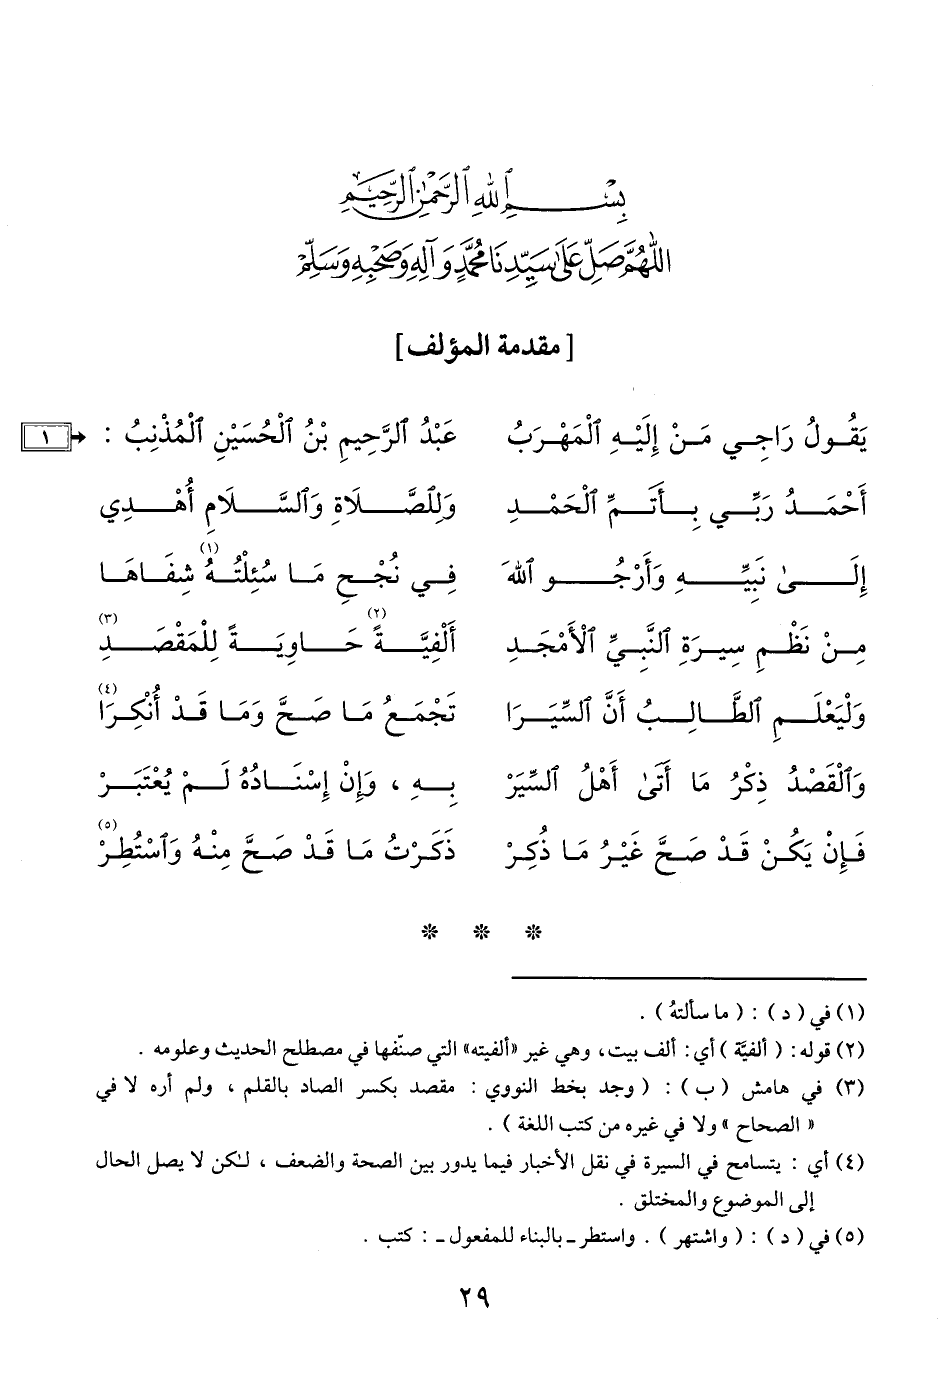 بِسْمِ ٱللَّهِ ٱلرَّحْمَٰنِ ٱلرَّحِيمِ
اللَّهُمَّ صَلِّ عَلَىٰ سَيِّدِنَا مُحَمَّدٍ وَآلِهِ وَصَحْبِهِ وَسَلِّمْ
[مقدمة المؤلف]
يَقُولُ رَاجِي مَنْ إِلَيْهِ ٱلْمَهْرَبُ عَبْدُ ٱلرَّحِيمِ بْنُ ٱلْحُسَيْنِ ٱلْمُذْنِبُ : ١
أَحْمَدُ رَبِّي بِأَتَمِّ ٱلْحَمْدِ وَلِلصَّلَاةِ وَٱلسَّلَامِ أُهْدِي
إِلَىٰ نَبِيِّهِ وَأَرْجُو ٱللهَ فِي نُجْحِ مَا سُئِلْتُهُ(١) شِفَاهَا
مِنْ نَظْمِ سِيرَةِ النَّبِيِّ ٱلْأَمْجَدِ أَلْفِيَّةً(٢) حَاوِيَةً لِلْمَقْصَدِ(٣)
وَلْيَعْلَمِ ٱلطَّالِبُ أَنَّ ٱلسِّيَرَا تَجْمَعُ مَا صَحَّ وَمَا قَدْ أُنْكِرَا(٤)
وَٱلْقَصْدُ ذِكْرُ مَا أَتَىٰ أَهْلُ ٱلسِّيَرْ بِهِ ، وَإِنْ إِسْنَادُهُ لَمْ يُعْتَبَرْ
فَإِنْ يَكُنْ قَدْ صَحَّ غَيْرُ مَا ذُكِرْ ذَكَرْتُ مَا قَدْ صَحَّ مِنْهُ وَٱسْتُطِرْ(٥)
* * *
(١) في ( د ) : ( ما سألتهُ ) .
(٢) قوله : ( ألفيَّة ) أي : ألف بيت ، وهي غير «ألفيته» التي صنّفها في مصطلح الحديث وعلومه .
(٣) في هامش ( ب ) : ( وجد بخط النووي : مقصد بكسر الصاد بالقلم ، ولم أره لا في
« الصحاح » ولا في غيره من كتب اللغة ) .
(٤) أي : يتسامح في السيرة في نقل الأخبار فيما يدور بين الصحة والضعف ، لكن لا يصل الحال
إلى الموضوع والمختلق .
(٥) في ( د ) : ( واشتهر ) . واستطر ـ بالبناء للمفعول ـ : كتب .
٢٩